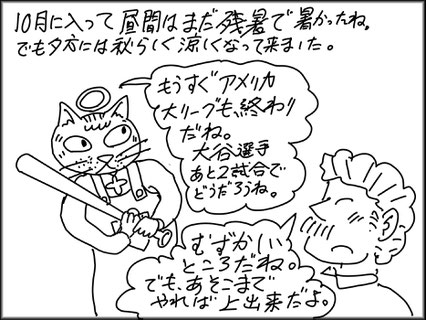 10月に入って昼間はまだ残暑で暑かったね。
でも夕方には秋らしく涼しくなって来ました。
もうすぐアメリカ
大リーグも、終わり
だね。
大谷選手
あと2試合で
どうだろうね。
むずかしい
ところだね。
でも、あそこまで
やれば上出来だよ。